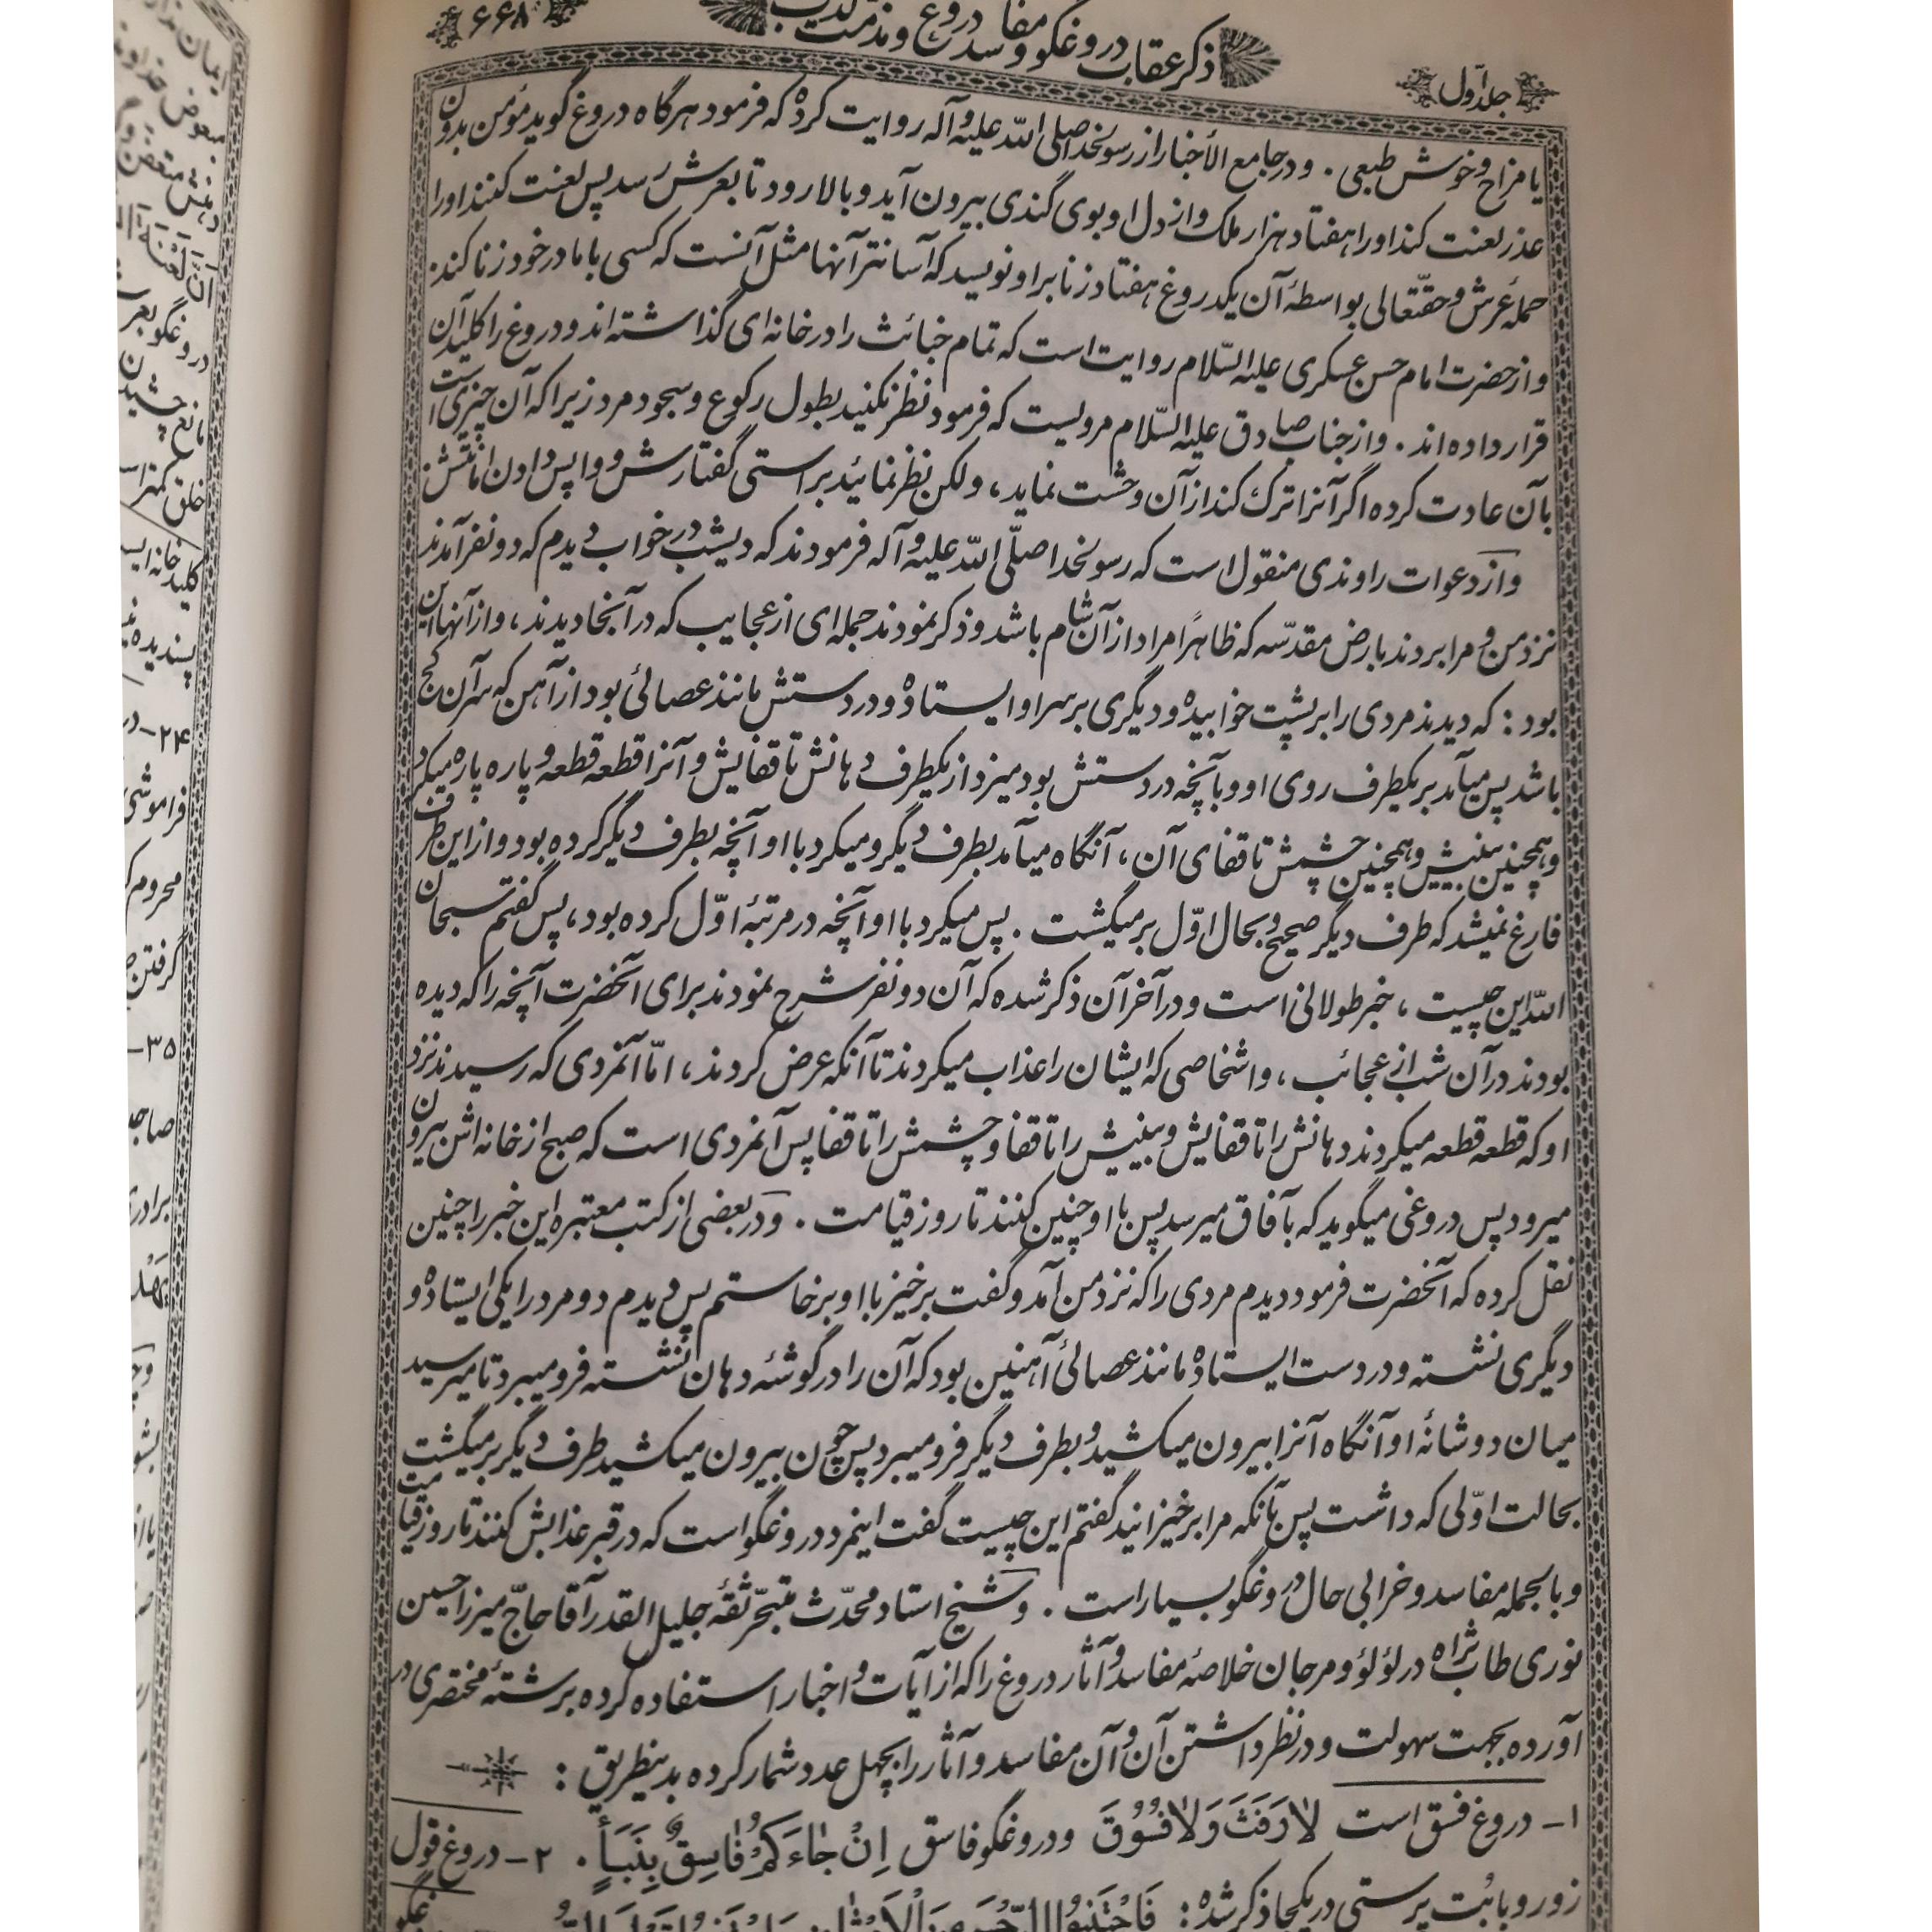 جلد اوّل
ذکر عقاب دروغگو و مفاسد دروغ و مذمت کذب
۶۶۸
یا مزاح و خوش طبعی . و در جامع الأخبار از رسولخدا صلی اللّه علیه و آله روایت کرده که فرمود هرگاه دروغ گوید مؤمن بدون
عذر لعنت کند او را هفتاد هزار ملک و از دل او بوی گندی بیرون آید و بالا رود تا بعرش رسد پس لعنت کنند او را
حملهٔ عرش و حقتعالی بواسطهٔ آن یکدروغ هفتاد زنا بر او نویسد که آسانتر آنها مثل آنست که کسی با مادر خود زنا کند
و از حضرت امام حسن عسکری علیه السّلام روایت است که تمام خبائث را در خانه ای گذاشته اند و دروغ را کلید آن
قرار داده اند . و از جناب صادق علیه السّلام مرویست که فرمود نظر نکنید بطول رکوع و سجود مرد زیرا که آن چیزی است
بآن عادت کرده اگر آنرا ترک کند از آن وحشت نماید ، ولکن نظر نمائید براستی گفتارش و واپس دادن امانتش
و از دعوات راوندی منقول است که رسولخدا صلّی اللّه علیه و آله فرمودند که دیشب در خواب دیدم که دو نفر آمدند
نزد من و مرا بردند بارض مقدّسه که ظاهراً مراد از آن شام باشد و ذکر نمودند جمله ای از عجایب که در آنجا دیدند ، و از آنها این
بود : که دیدند مردی را بر پشت خوابیده و دیگری بر سر او ایستاده و در دستش مانند عصائی بود از آهن که سر آن کج
باشد پس میآمد بر یکطرف روی او و بآنچه در دستش بود میزد از یکطرف دهانش تا قفایش و آنرا قطعه قطعه و پاره پاره میکرد
و همچنین بینیش و همچنین چشمش تا قفای آن ، آنگاه میآمد بطرف دیگر و میکرد با او آنچه بطرف دیگر کرده بود و از این طرف
فارغ نمیشد که طرف دیگر صحیح و بحال اوّل بر میگشت . پس میکرد با او آنچه در مرتبهٔ اوّل کرده بود ، پس گفتم سبحان
اللّه این چیست ، خبر طولانی است و در آخر آن ذکر شده که آن دو نفر شرح نمودند برای آنحضرت آنچه را که دیده
بودند در آن شب از عجائب ، و اشخاصی که ایشان را عذاب میکردند تا آنکه عرض کردند ، امّا آنمردی که رسیدند نزد
او که قطعه قطعه میکردند دهانش را تا قفایش و بینیش را تا قفا و چشمش را تا قفا پس آنمردی است که صبح از خانه اش بیرون
میرود پس دروغی میگوید که بآفاق میرسد پس با او چنین کنند تا روز قیامت . و در بعضی از کتب معتبره این خبر را چنین
نقل کرده که آنحضرت فرمود دیدم مردی را که نزد من آمد و گفت برخیز با او برخاستم پس دیدم دو مرد را یکی ایستاده و
دیگری نشسته و در دست ایستاده مانند عصائی آهنین بود که آن را در گوشهٔ دهان نشسته فرو میبرد تا میرسید
میان دو شانهٔ او آنگاه آنرا بیرون میکشید و بطرف دیگر فرو میبرد پس چون بیرون میکشید طرف دیگر بر میگشت
بحالت اوّلی که داشت پس بآنکه مرا برخیزانید گفتم این چیست گفت اینمرد دروغگو است که در قبر عذابش کنند تا روز قیامت
و بالجمله مفاسد و خرابی حال دروغگو بسیار است . و شیخ استاد محدّث متبحّر ثقهٔ جلیل القدر آقا حاجّ میرزا حسین
نوری طاب ثراه در لؤلؤ و مرجان خلاصهٔ مفاسد و آثار دروغ را که از آیات و اخبار استفاده کرده برشتهٔ مختصری در
آورده بجهت سهولت و در نظر داشتن آن و آن مفاسد و آثار را بچهل عدد شمار کرده بدینطریق :
۱ـ دروغ فسق است لاٰرَفَثَ وَلاٰفُسُوقَ و دروغگو فاسق اِنْ جٰاءَكُمْ فٰاسِقٌ بِنَبَأٍ . ۲ـ دروغ قول
زور و با بُت پرستی در یکجا ذکر شده : فَاجْتَنِبُوا